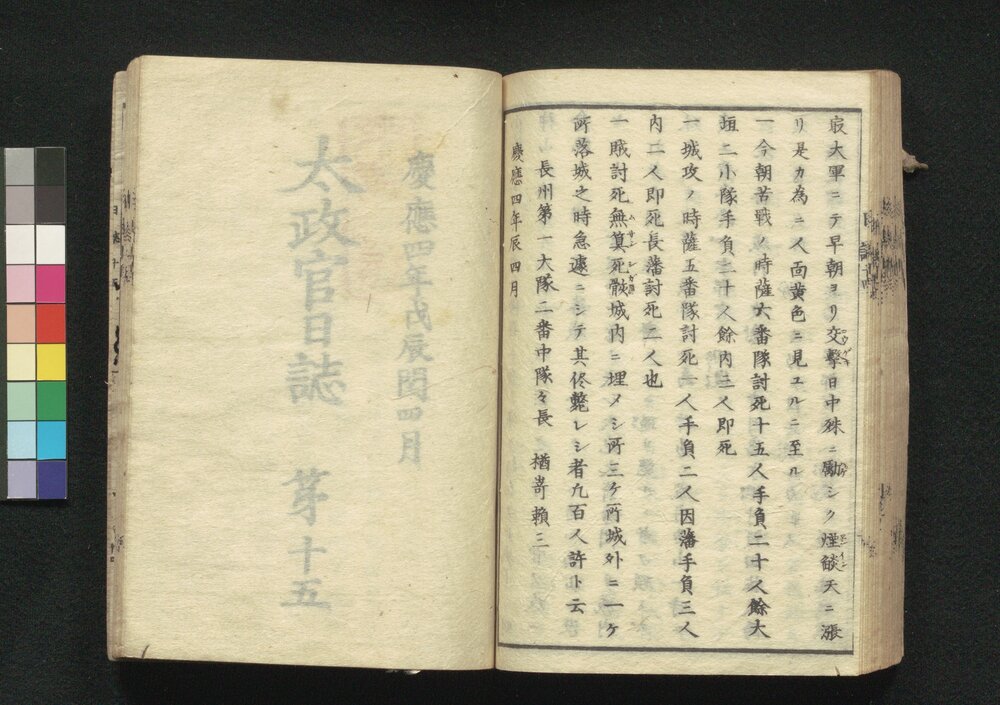 㝡大軍ニテ早朝ヨリ交撃日中殊ニ勵シク煙燄天ニ漲
リ是カ為ニ人面黄色ニ見ユルニ至ル
一今朝苦戰ノ時薩六番隊討死十五人手負二十人餘大
垣二小隊手負二十人餘内三人即死
一城攻ノ時薩五番隊討死六人手負二人因藩手負三人
内二人即死長藩討死二人也
一賊討死無筭死骸城内ニ埋メシ所三ケ所城外ニ一ケ
所落城之時急遽ニシテ其侭斃レシ者凡百人許ト云
長州第一大隊二番中隊々長 楢㟢賴三
慶應四年辰四月
慶應四年戊辰閏四月
太政官日誌 第十五